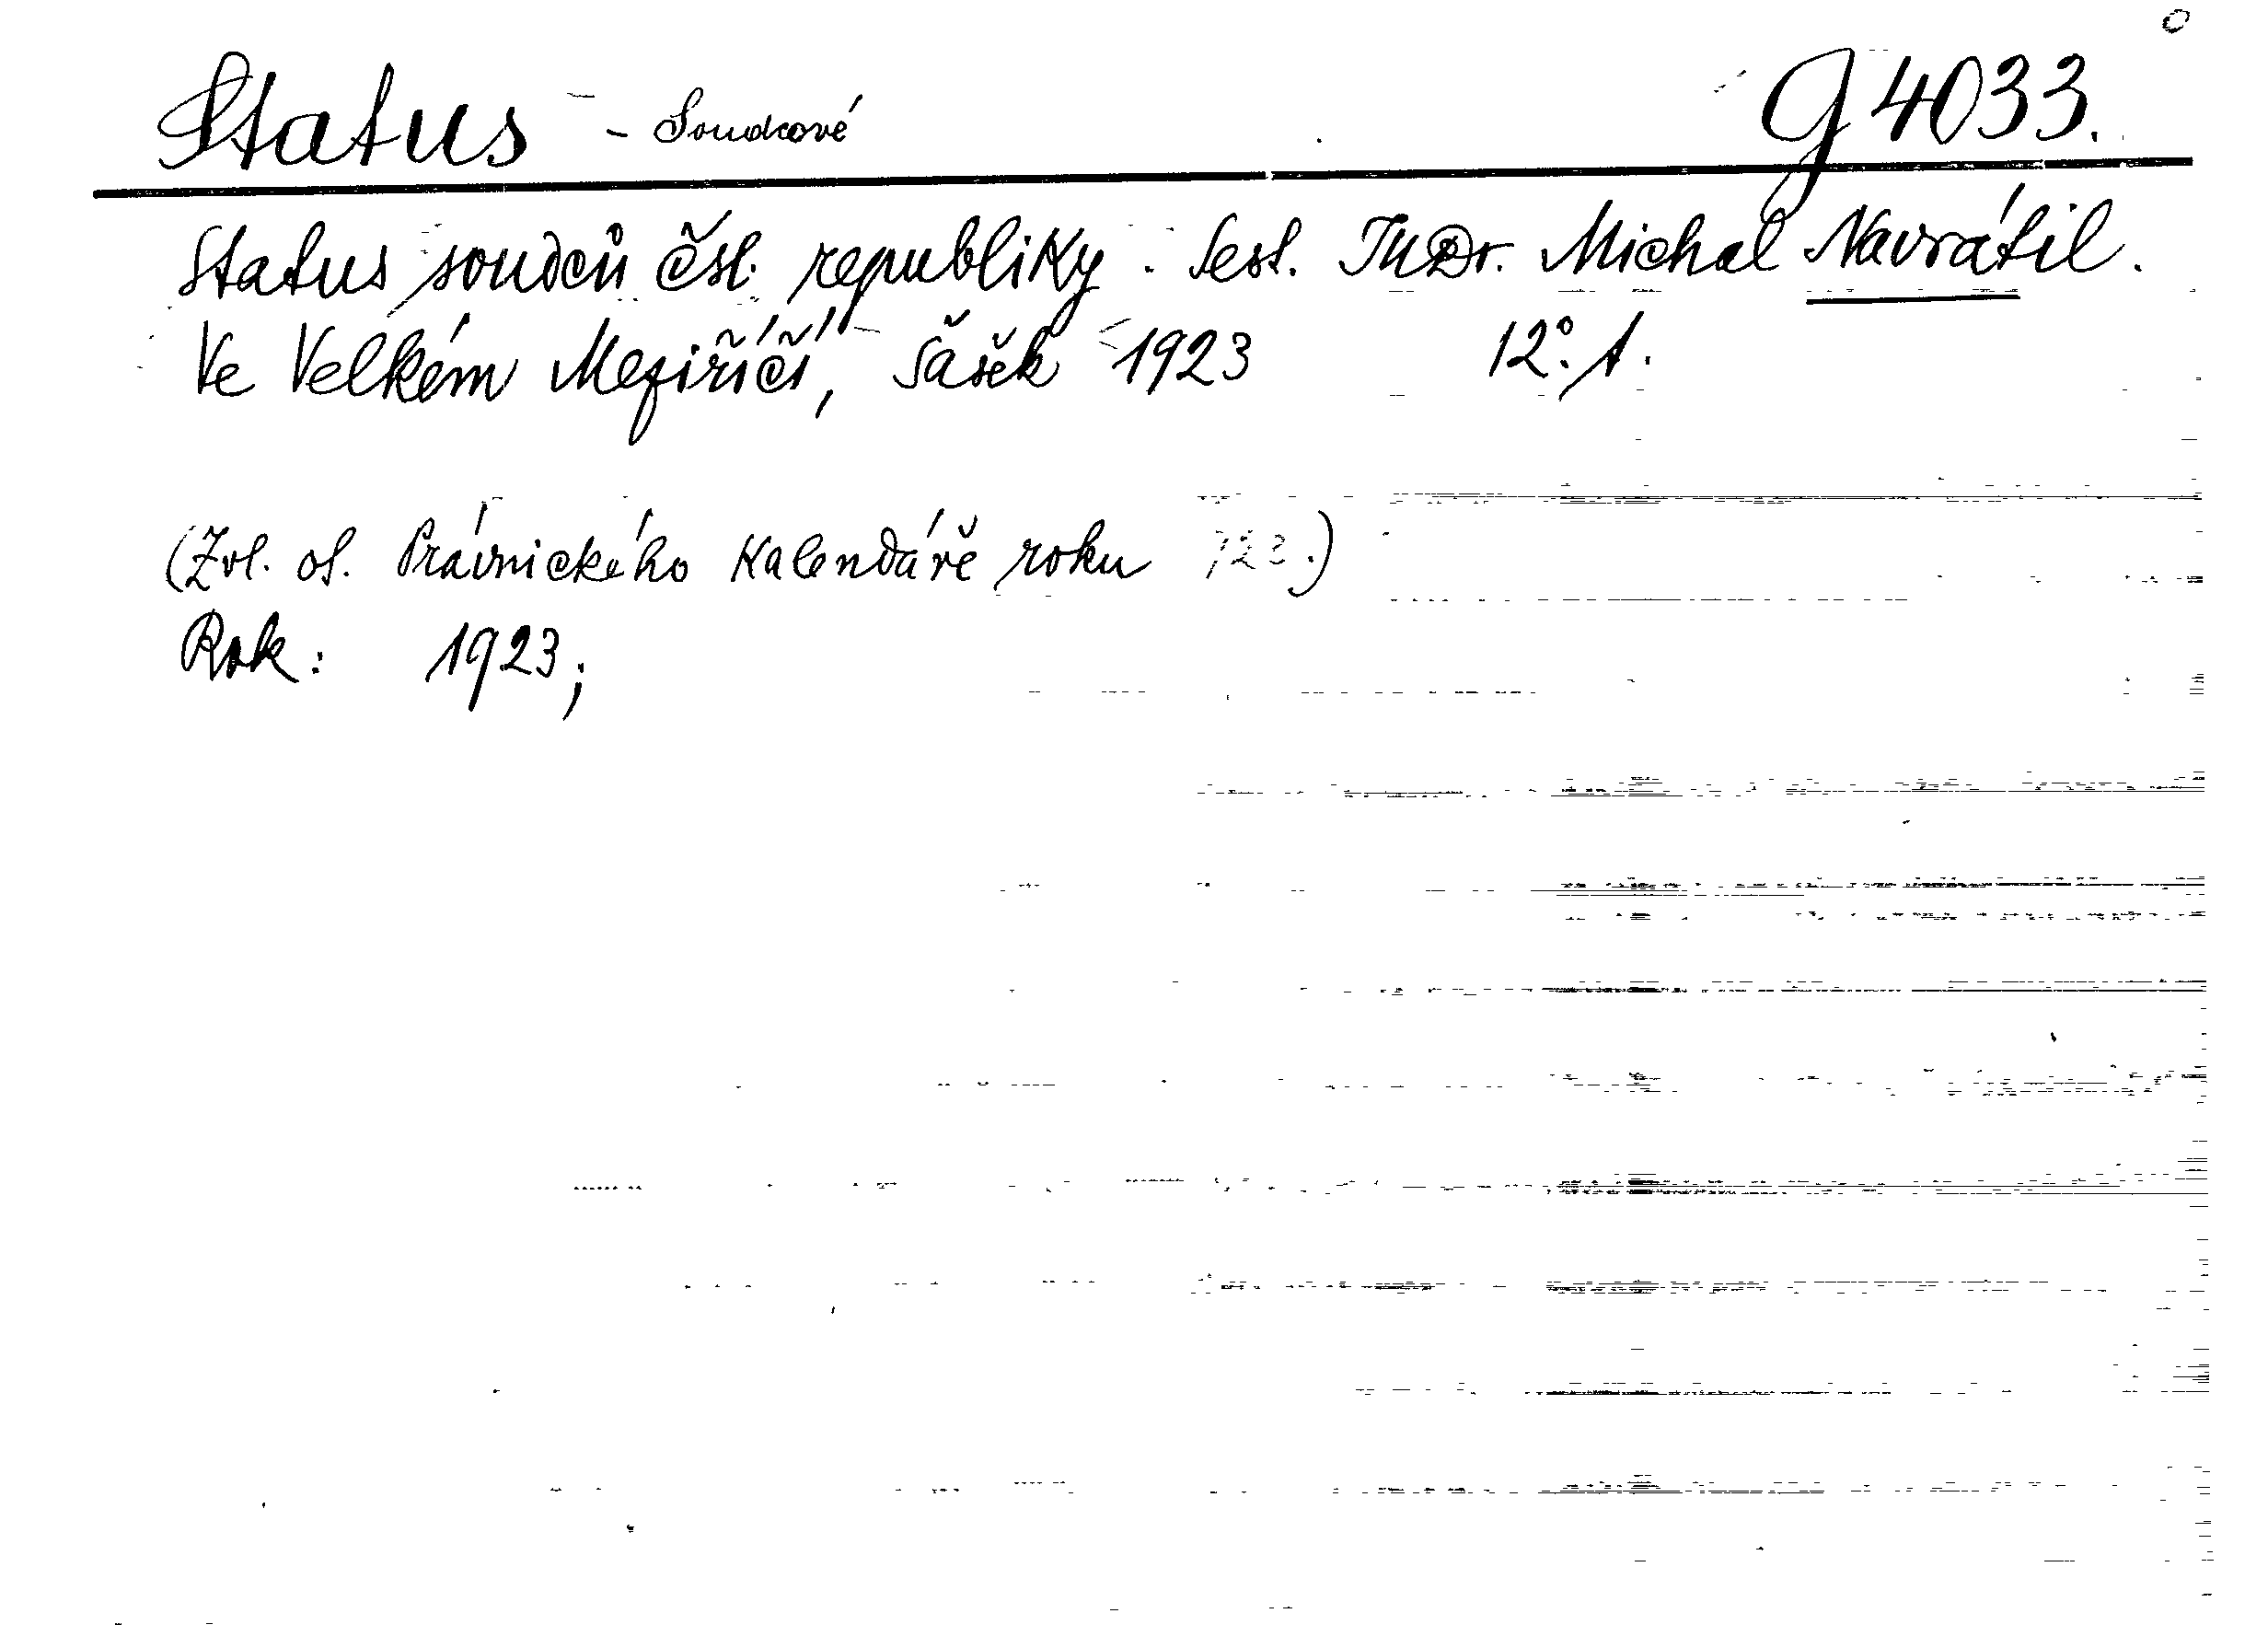 Status - Soudcové G 4033.
Status soudců čsl. republiky. Sest. JUDr. Michal Navrátil.
Ve Velkém Meziříčí, Šašek 1923 12°. 1.
(Zvl. ot. Právnického Kalendáře roku 123.)
Rok: 1923;